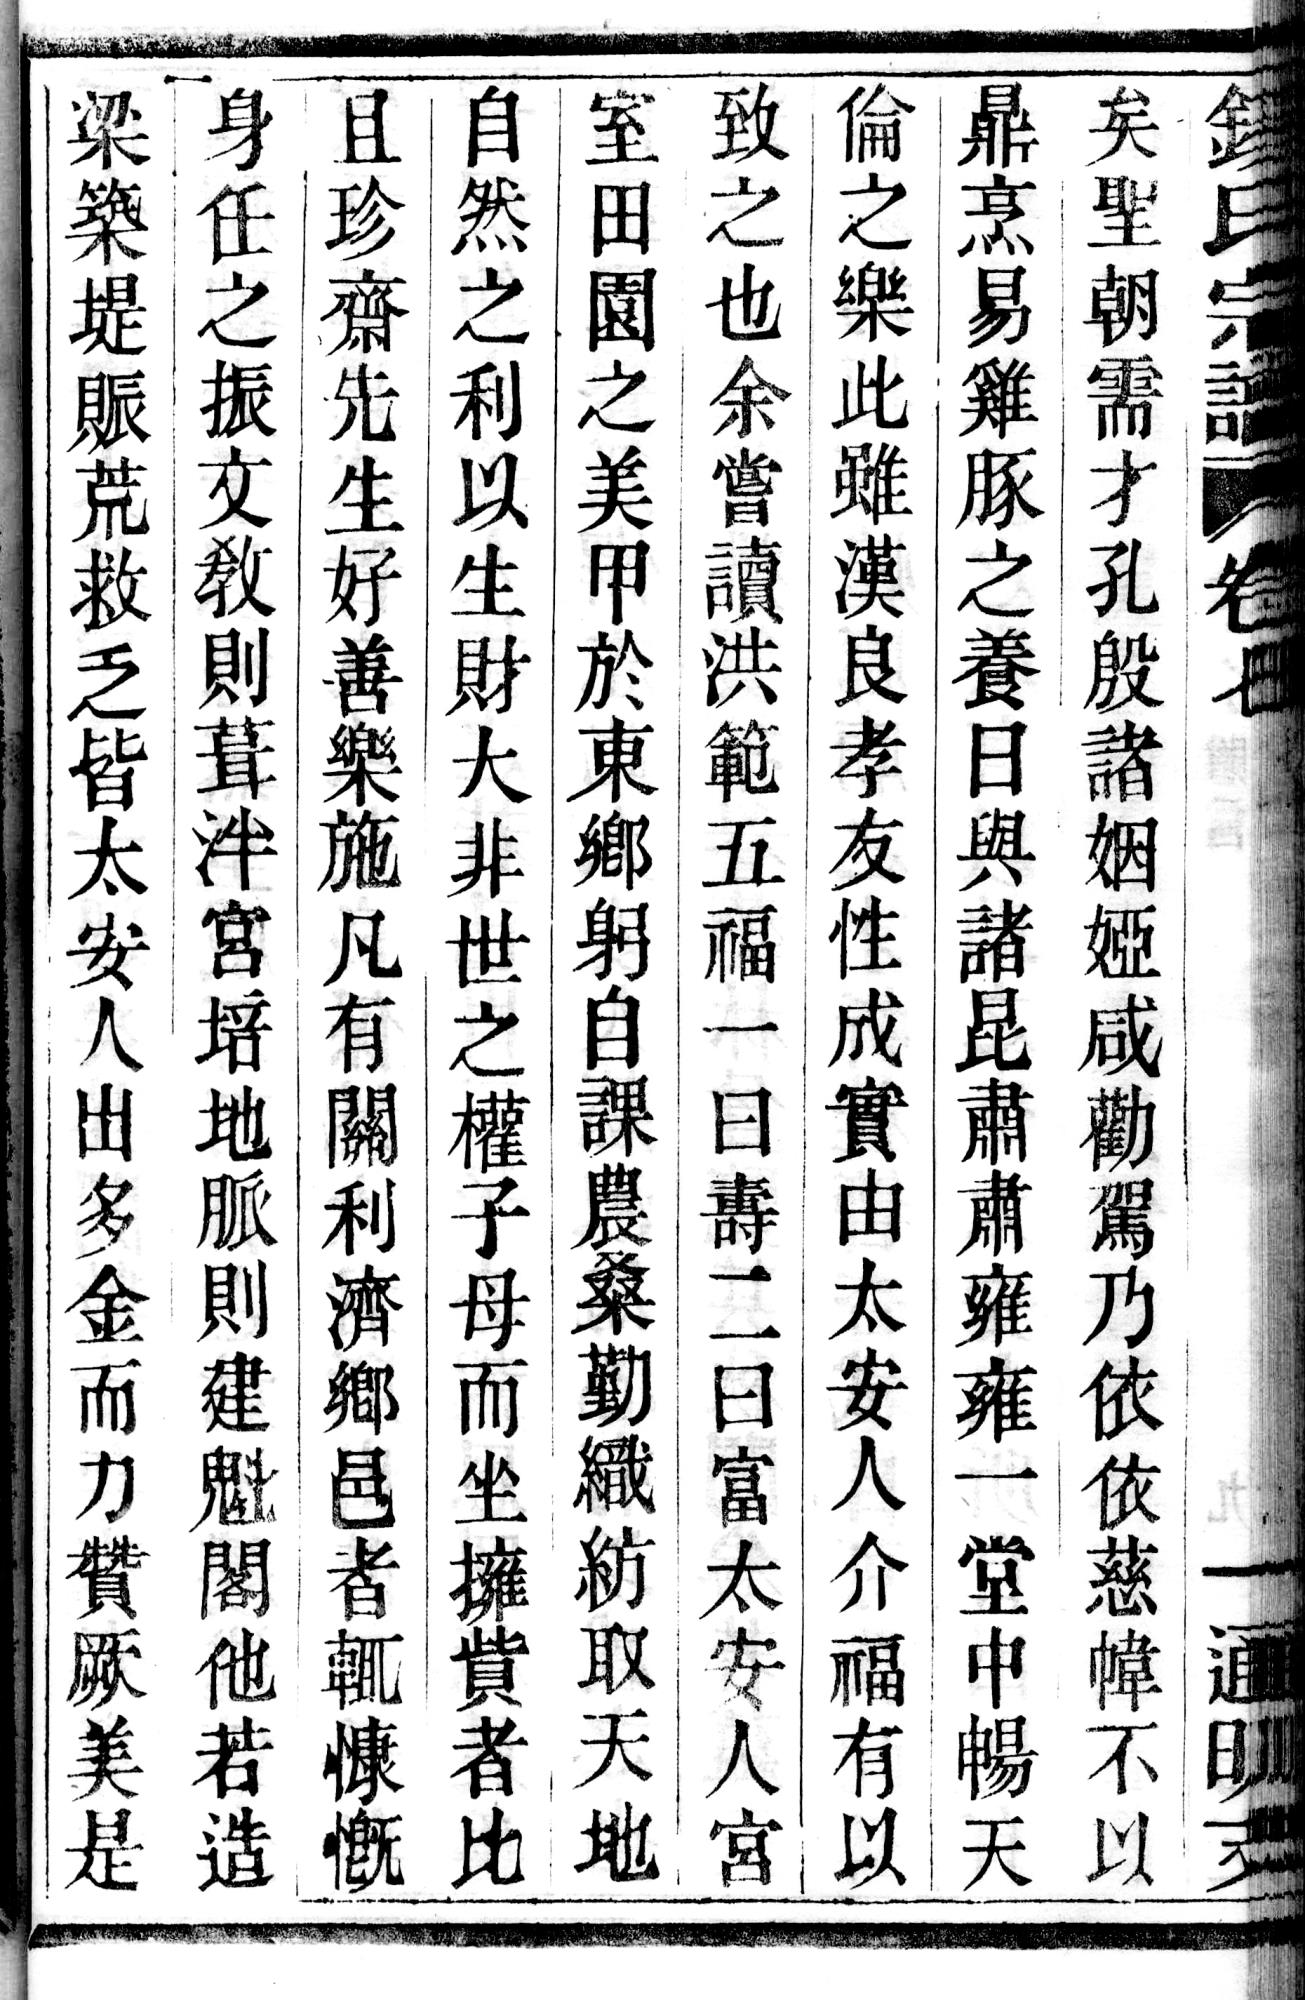 氏宗譜 卷七 通明天
矣聖朝需才孔殷諸姻婭咸勸駕乃依依慈幃不以
鼎烹易雞豚之養日與諸昆肅肅雍雍一堂中暢天
倫之樂此雖漢良孝友性成實由太安人介福有以
致之也余嘗讀洪範五福一曰壽二曰富太安人宮
室田園之美甲於東鄉躬自課農桑勤織紡取天地
自然之利以生財大非世之權子母而坐擁貲者比
且珍齋先生好善樂施凡有關利濟鄉邑者輒慷慨
身任之振文教則葺泮宮培地脈則建魁閣他若造
梁築堤賑荒救乏皆太安人出多金而力贊厥美是